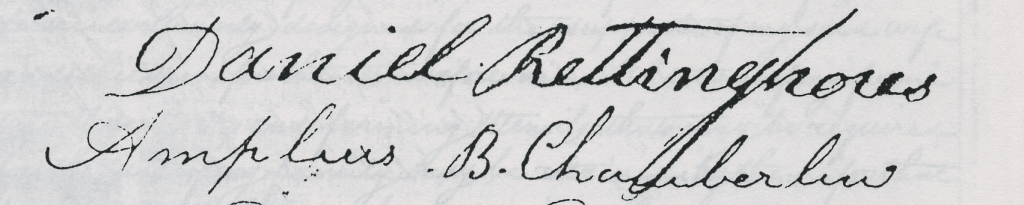 Daniel Rettinghous
Amplius. B. Chamberlin